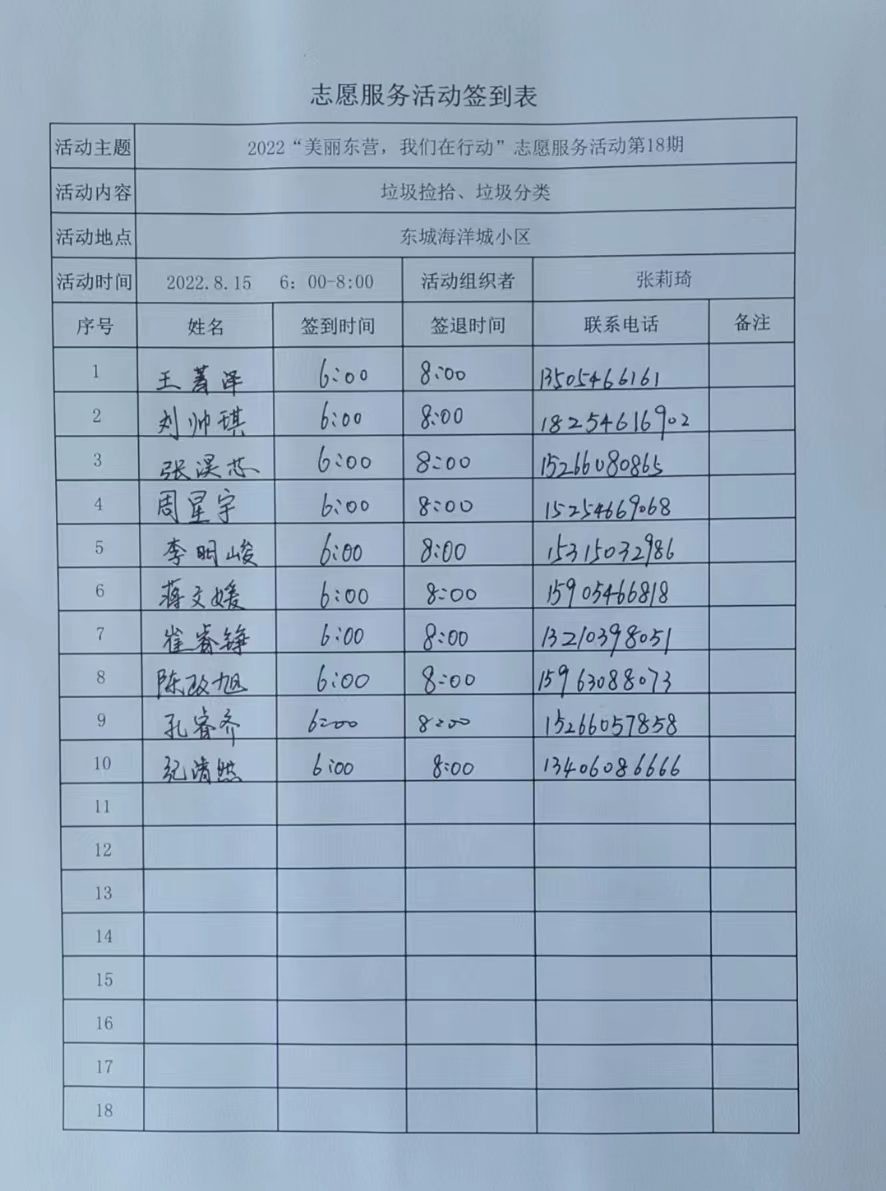 志愿服务活动签到表
活动主题 2022“美丽东营，我们在行动”志愿服务活动第18期
活动内容 垃圾捡拾、垃圾分类
活动地点 东城海洋城小区
活动时间 2022.8.15 6：00-8:00 活动组织者 张莉琦
序号 姓名 签到时间 签退时间 联系电话 备注
1 王菖泽 6:00 8:00 13505466161
2 刘帅琪 6:00 8:00 18254616902
3 张淏芯 6:00 8:00 15266080865
4 周星宇 6:00 8:00 15254669068
5 李明峻 6:00 8:00 15315032986
6 蒋文媛 6:00 8:00 15905466818
7 崔睿铮 6:00 8:00 13210398051
8 陈改旭 6:00 8:00 15963088073
9 孔睿齐 6:00 8:00 15266057858
10 纪清然 6:00 8:00 13406086666
11
12
13
14
15
16
17
18